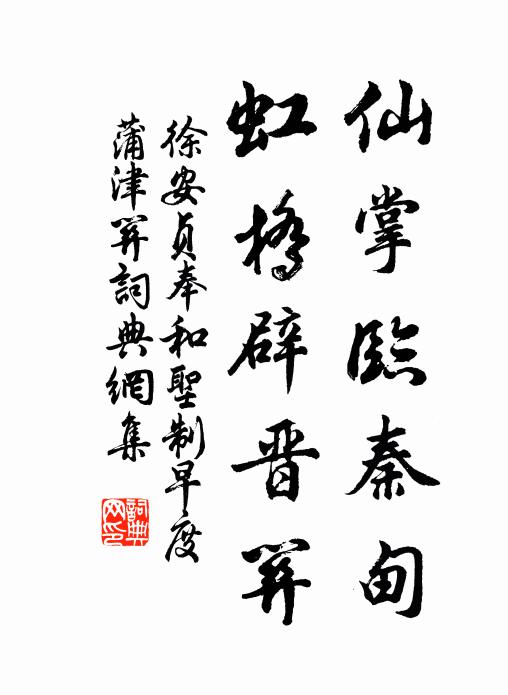 仙掌臨秦甸
虹橋辟晋關
徐安貞奉和聖制早度
蒲津關詞典網集
詞典
网印